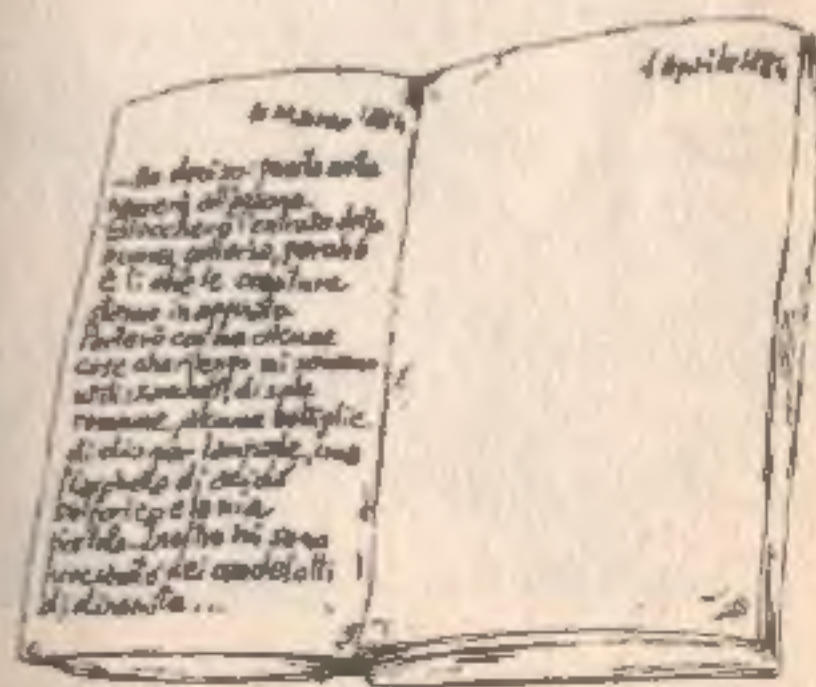 Marzo
...Ho deciso. Questa notte
all'azione.
Bloccherò l'entrata della
nuova galleria, perché
è lì che le creature
stanno in agguato.
Porterò con me alcune
cose che ritengo mi saranno
utili: sacchetti di sale
comune, alcune bottiglie
di olio per lampade, una
di acido
solforico e la mia
pistola. Inoltre mi sono
procurato dei candelotti
di dinamite...
1 Aprile